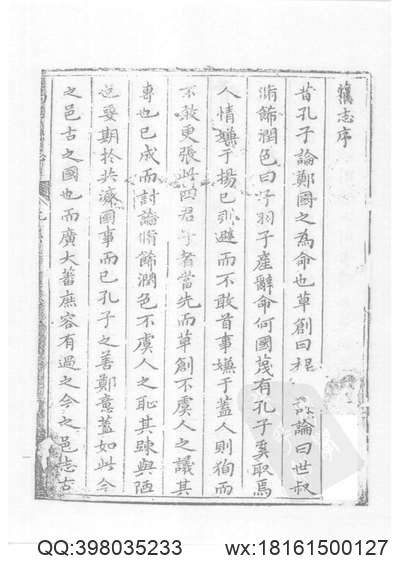 舊志序
昔孔子論鄭國之為命也草創曰裨 討論曰世叔
脩飾潤色曰子羽子產辭命何國蔑有孔子奚取焉
人情嫌于揚己則避而不敢首事嫌于蓋人則狥而
不敢更張此四君子者當先而草創不虞人之議其
專也已成而討論脩飾潤色不虞人之恥其踈與陋
也要期於共濟國事而已孔子之善鄭意蓋如此今
之邑古之國也而廣大蕃庶容有過之今之邑志古
QQ:398035233 wx:18161500127